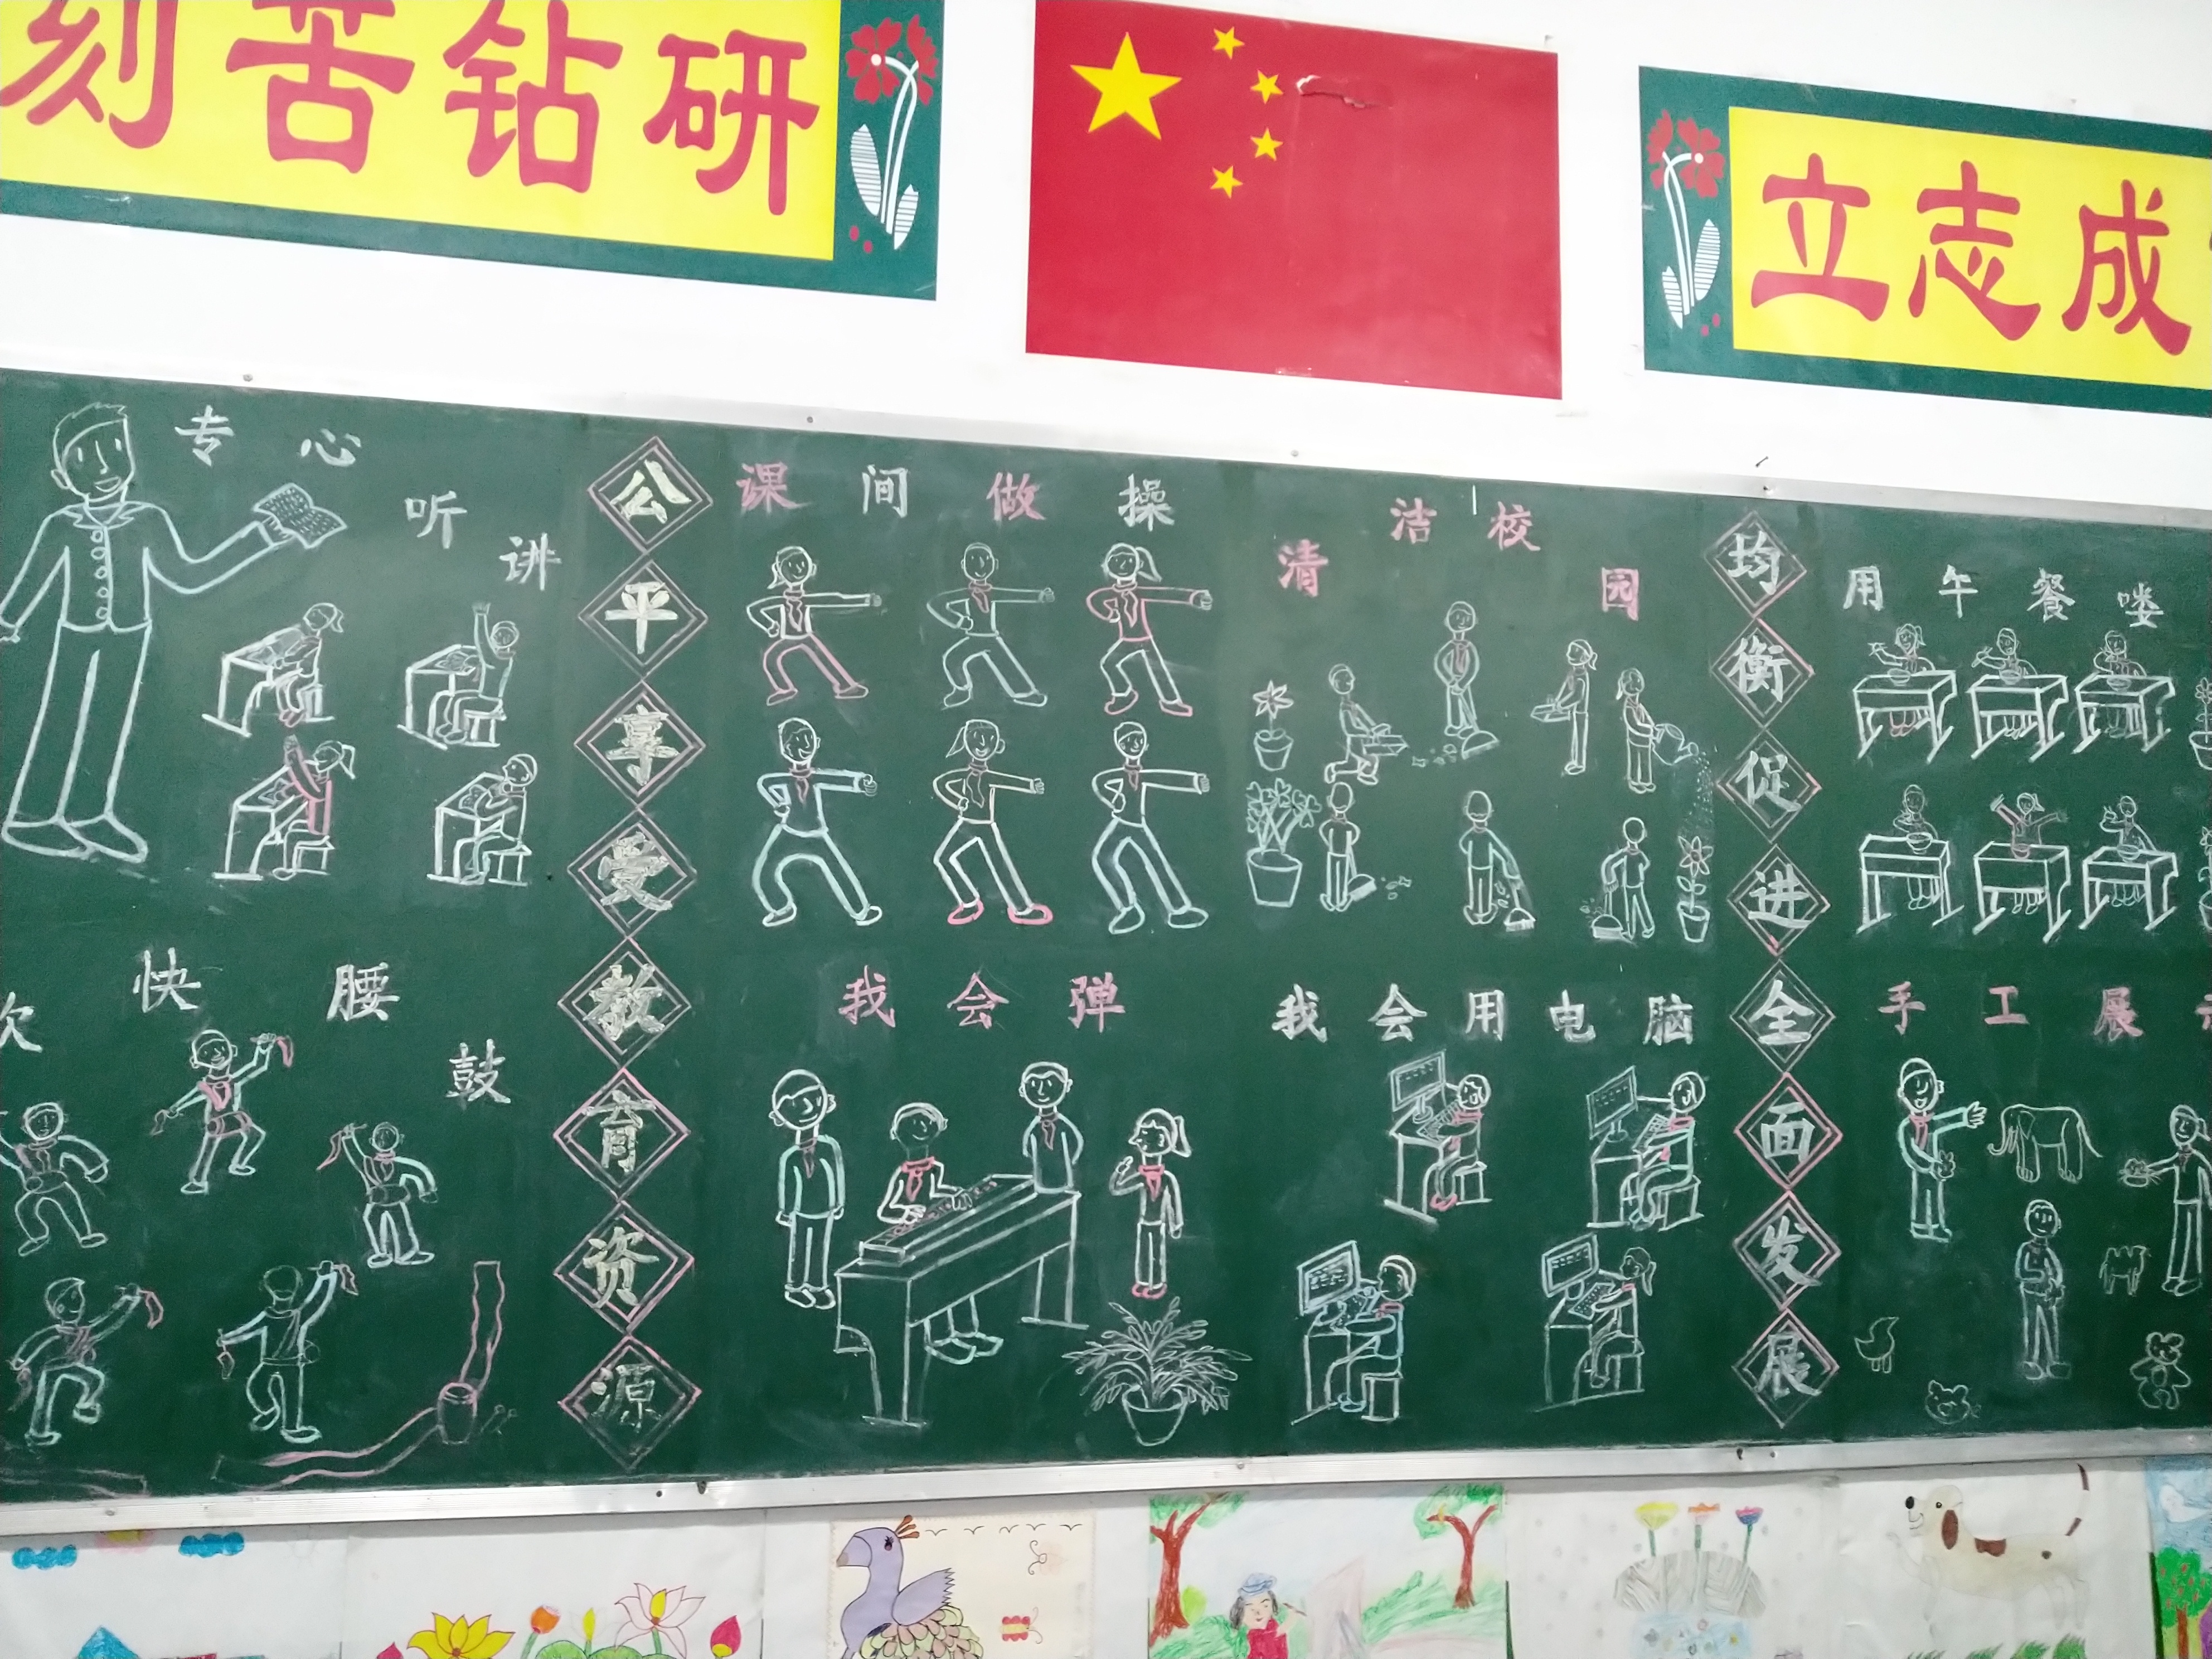 刻苦钻研
立志成
专心听讲
公平享受教育资源
课间做操
清洁校园
均衡促进全面发展
用午餐喽
欢快腰鼓
我会弹
我会用电脑
手工展